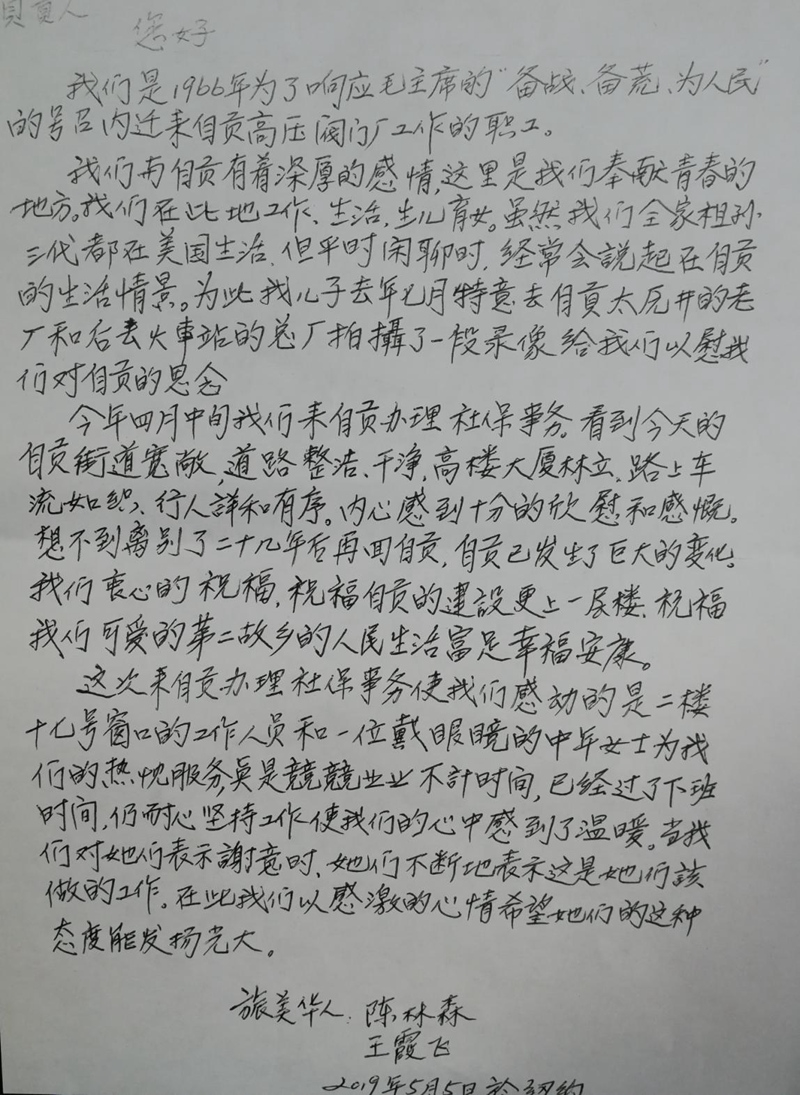 负责人
您好
我们是1966年为了响应毛主席的"备战、备荒、为人民"
的号召内迁来自贡高压阀门厂工作的职工。
我们与自贡有着深厚的感情,这里是我们奉献青春的
地方。我们在此地工作、生活,生儿育女。虽然我们全家祖孙
三代都在美国生活,但平时闲聊时,经常会説起在自贡
的生活情景。为此我儿子去年七月特意去自贡太原井的老
厂和后去火車站的总厂拍攝了一段录像给我们以慰我
们对自贡的思念
今年四月中旬我们来自贡办理社保事务。看到今天的
自贡街道宽敞,道路整洁、干净,高楼大厦林立,路上车
流如织、行人詳和有序。内心感到十分的欣慰和感慨。
想不到离别了二十九年后再回自贡,自贡已发生了巨大的变化。
我们衷心的祝福,祝福自贡的建設更上一层楼、祝福
我们可爱的第二故乡的人民生活富足幸福安康。
这次来自贡办理社保事务使我们感动的是二楼
十七号窗口的工作人员和一位戴眼镜的中年女士为我
们的热忱服务,真是競競业业不計时间,已经过了下班
时间,仍耐心坚持工作使我们的心中感到了温暖。当我
们对她们表示謝意时、她们不断地表示这是她们該
做的工作。在此我们以感激的心情希望她们的这种
态度能发扬光大。
旅美华人:陈林森
王霞飞
2019年5月5日於纽约